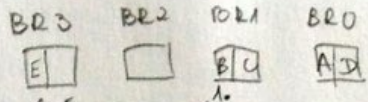 BR3 BR2 BR1 BR0
E B C A D
1.